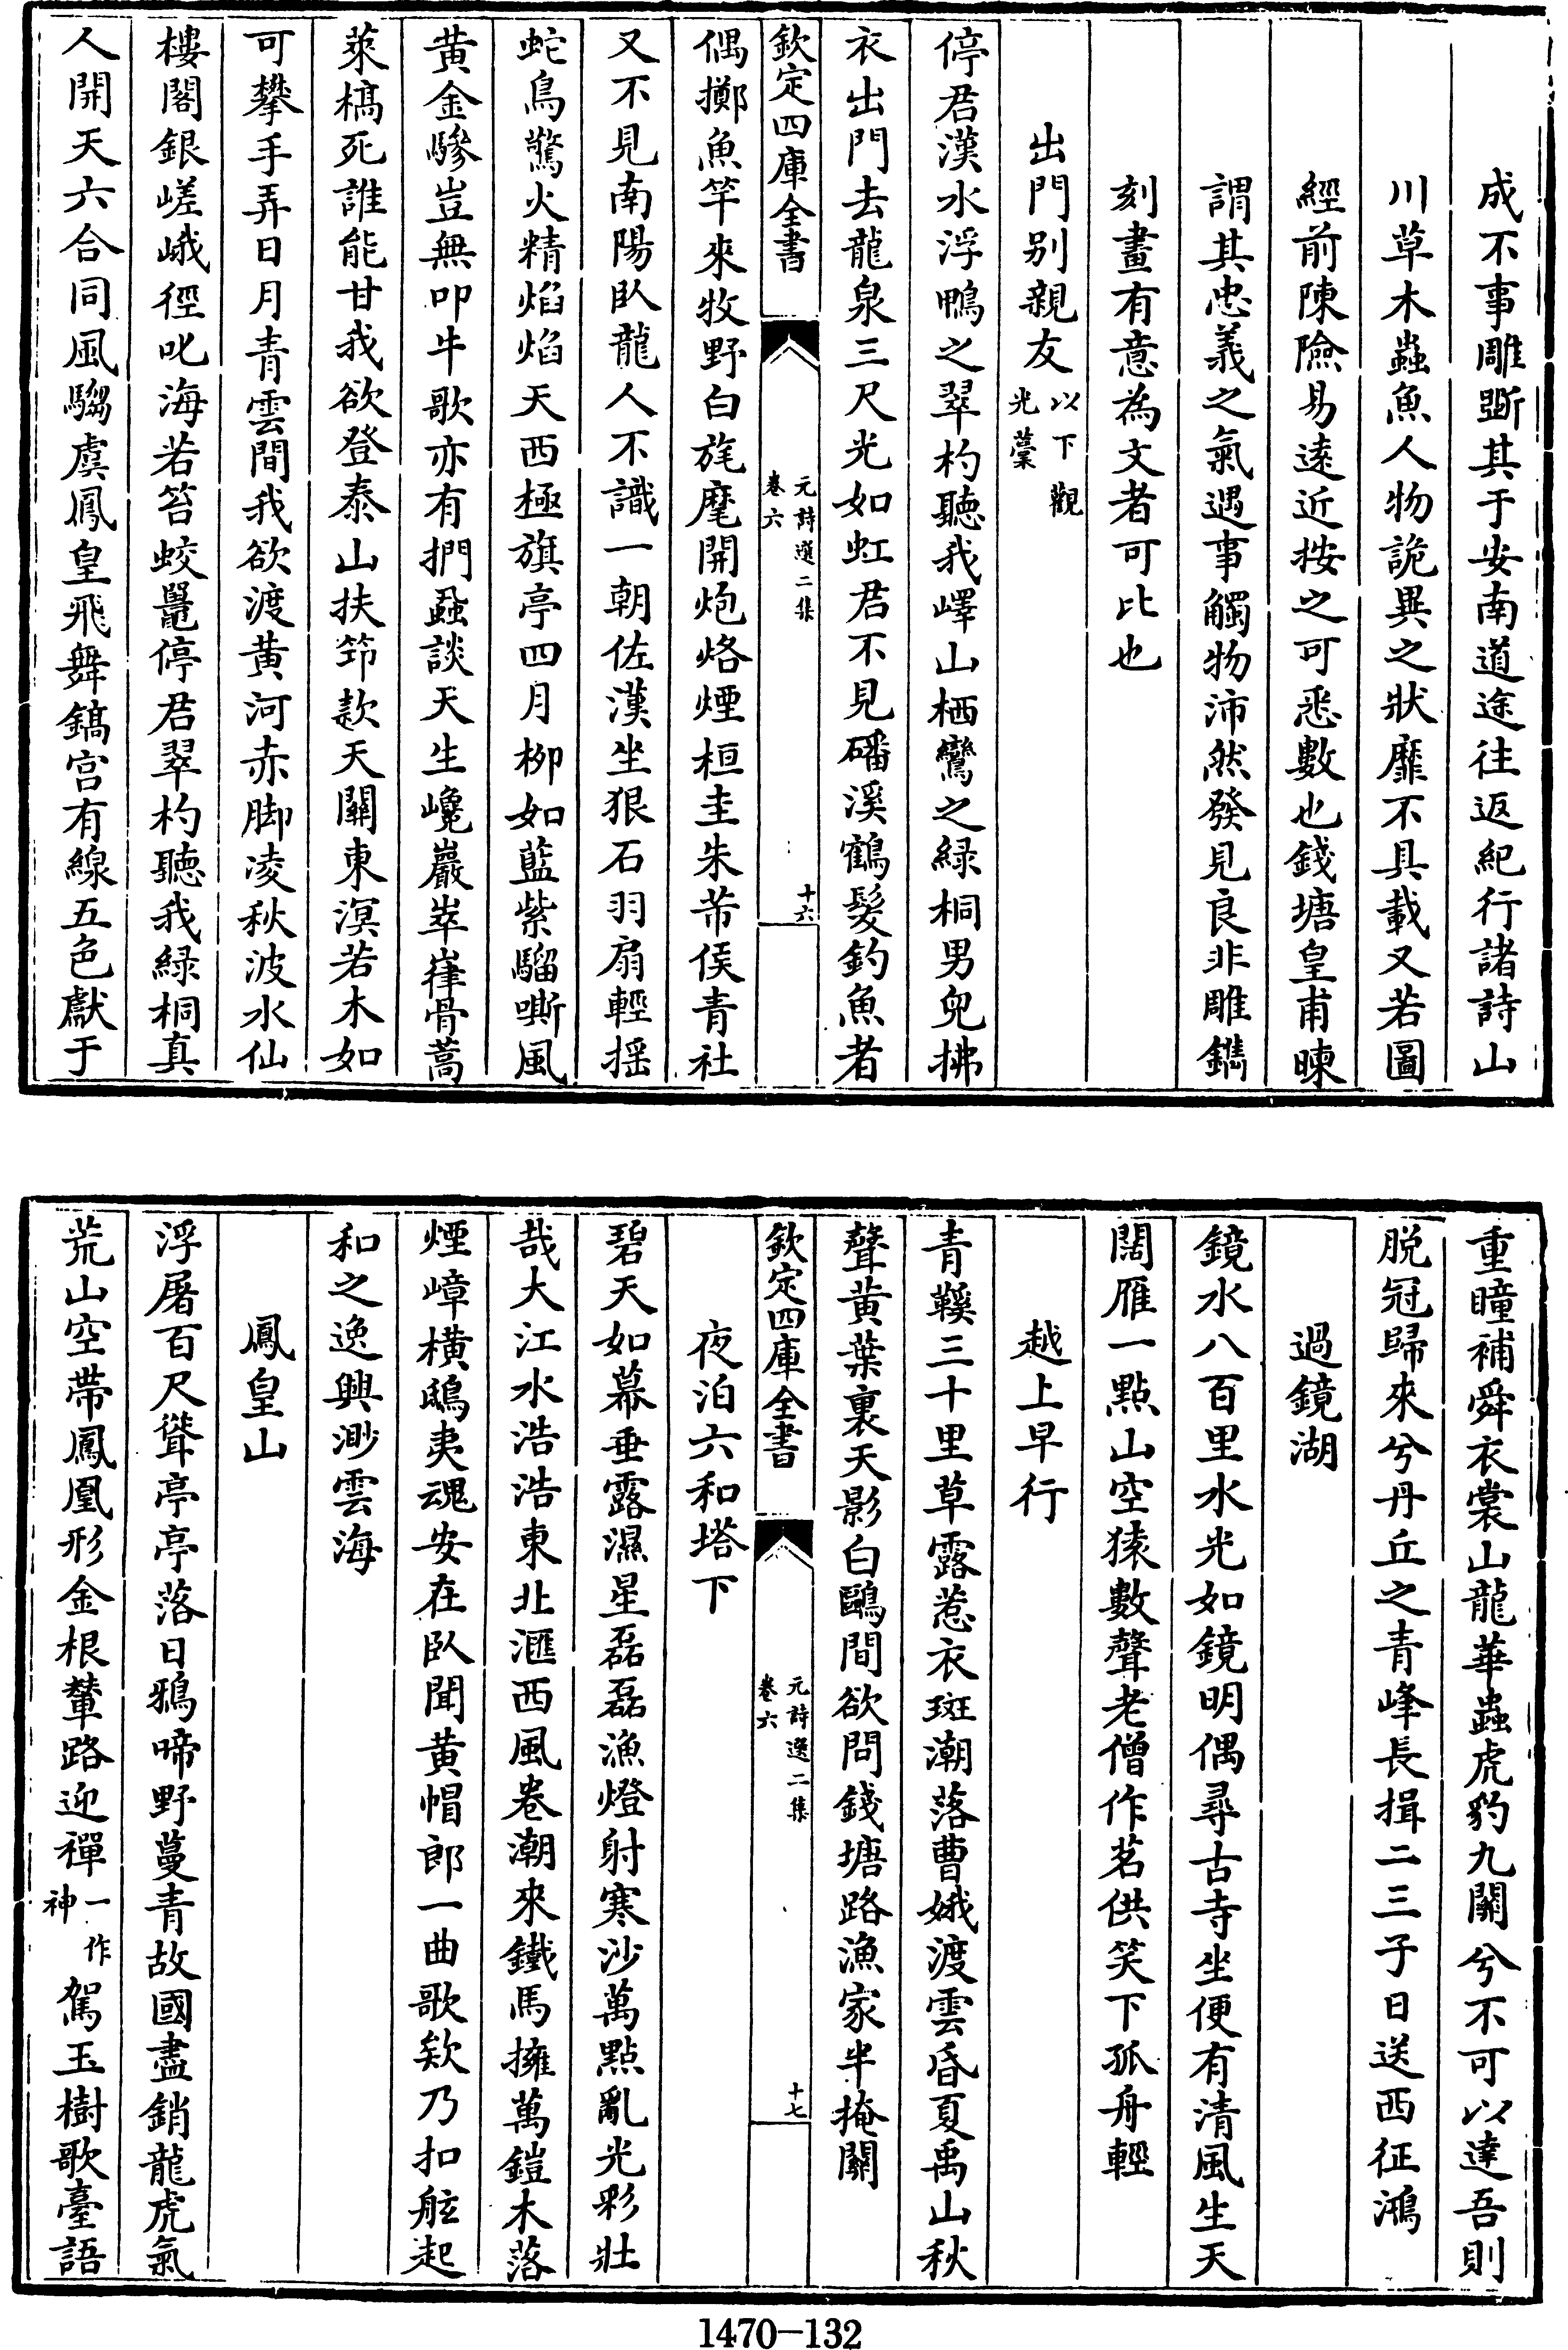 成不事雕斲其于安南道途往返紀行諸詩山
川草木蟲魚人物詭異之狀靡不具載又若圖
經前陳險易逺近按之可悉數也錢塘皇甫暕
謂其忠義之氣遇事觸物沛然發見良非雕鐫
刻畫有意為文者可比也
出門别親友以下觀光藁
停君漢水浮鴨之翠杓聽我嶧山栖鸞之緑桐男兒拂
衣出門去龍泉三尺光如虹君不見磻溪鶴髮釣魚者
欽定四庫全書
元詩選二集
卷六
十六
偶擲魚竿來牧野白旄麾開炮烙煙桓圭朱芾侯青社
又不見南陽臥龍人不識一朝佐漢坐狠石羽扇輕揺
蛇鳥驚火精焰焰天西極旗亭四月柳如藍紫騮嘶風
黄金驂豈無叩牛歌亦有捫蝨談天生巉巖崒嵂骨蒿
萊槁死誰能甘我欲登泰山扶笻欵天關東溟若木如
可攀手弄日月青雲間我欲渡黄河赤脚凌秋波水仙
樓閣銀嵯峨徑叱海若笞蛟鼉停君翠杓聽我緑桐真
人開天六合同風騶虞鳳皇飛舞鎬宫有線五色獻于
重瞳補舜衣裳山龍華蟲虎豹九關兮不可以達吾則
脱冠歸來兮丹丘之青峰長揖二三子日送西征鴻
過鏡湖
鏡水八百里水光如鏡明偶尋古寺坐便有清風生天
闊雁一點山空猿數聲老僧作茗供笑下孤舟輕
越上早行
青鞵三十里草露惹衣斑潮落曹娥渡雲昏夏禹山秋
聲黄葉裏天影白鷗間欲問錢塘路漁家半掩關
欽定四庫全書
元詩選二集
卷六
十七
夜泊六和塔下
碧天如幕垂露濕星磊磊漁燈射寒沙萬點亂光彩壯
哉大江水浩浩東北滙西風卷潮來鐵馬擁萬鎧木落
煙嶂横鴟夷魂安在臥聞黄帽郎一曲歌欸乃扣舷起
和之逸興渺雲海
鳳皇山
浮屠百尺聳亭亭落日鴉啼野蔓青故國盡銷龍虎氣
荒山空帶鳳凰形金根輦路迎禪一作神駕玉樹歌臺語
1470-132